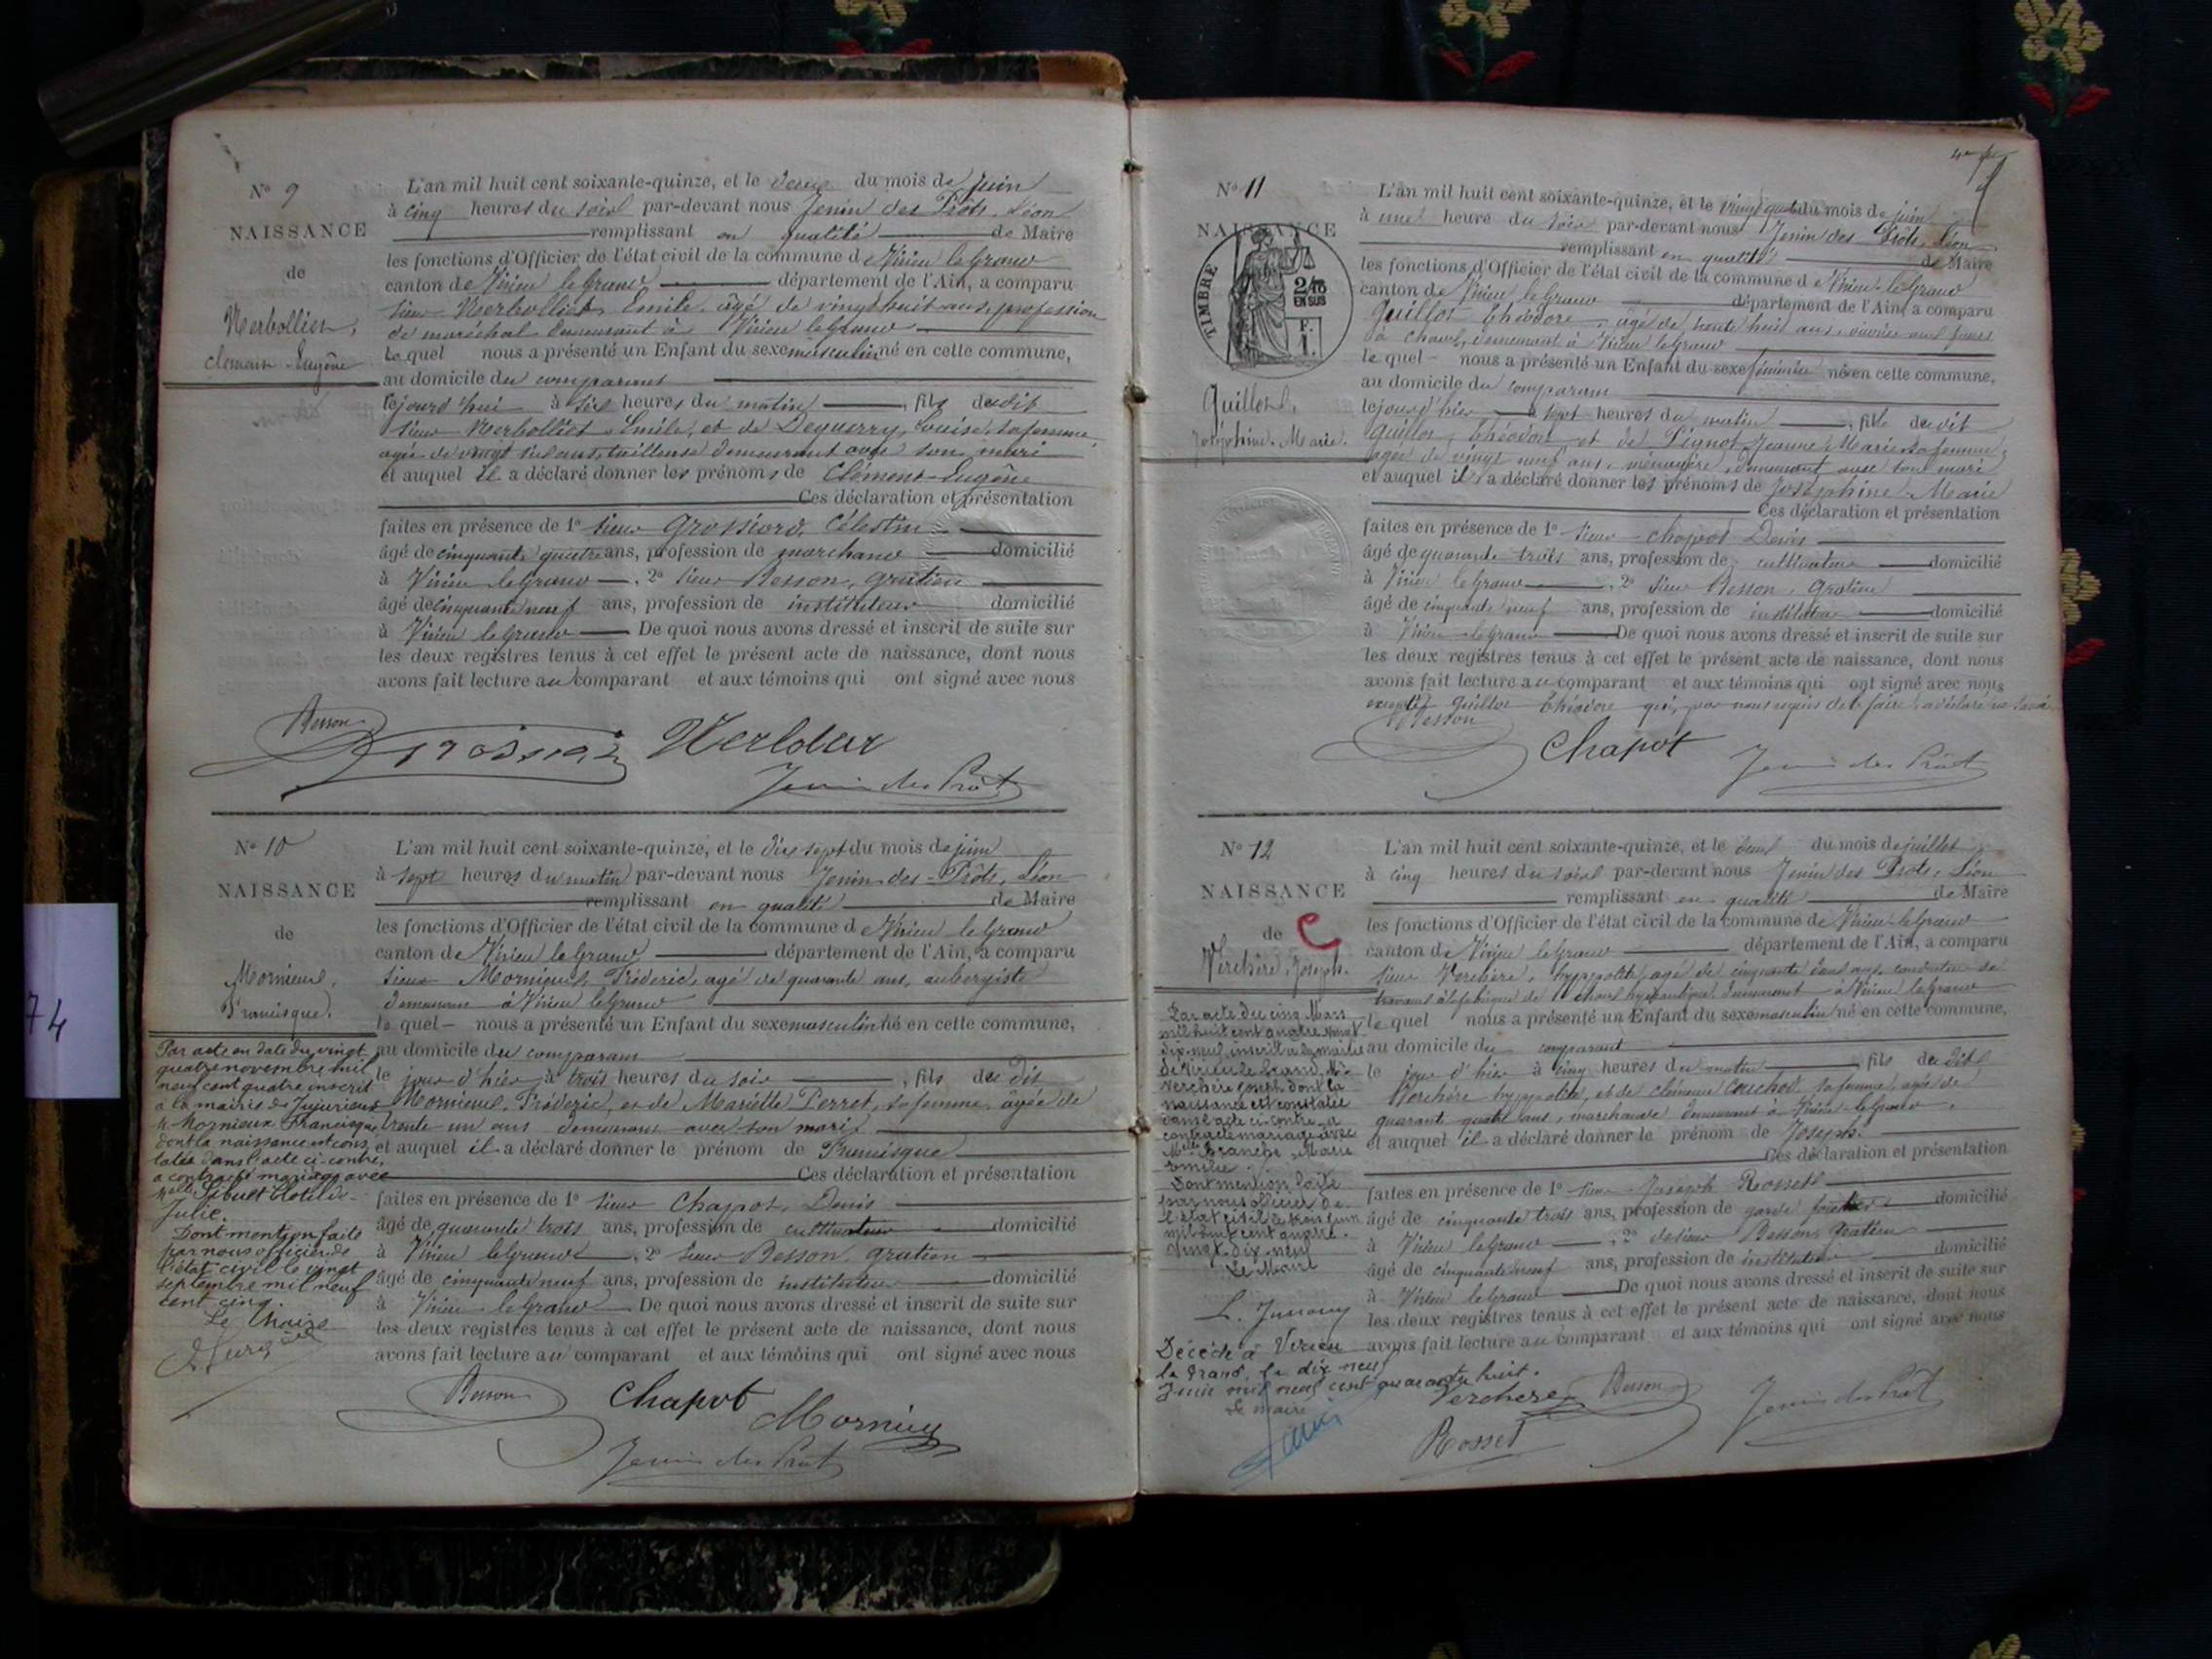 74
Nº 9
NAISSANCE
de
Clément Eugène
L'an mil huit cent soixante-quinze, et le deux du mois de juin
à cinq heures du soir par-devant nous Jenin des Prôts, Léon
remplissant en qualité de Maire
les fonctions d'Officier de l'état civil de la commune de Virieu le Grand
canton de Virieu le Grand département de l'Ain, a comparu
sieur Emile, âgé de vingt huit ans, profession
de maréchal demeurant à Virieu le Grand
le quel nous a présenté un Enfant du sexe masculin né en cette commune,
au domicile du comparant
à six heures du matin, fils du dit
sieur Emile, et de Deguerry, Louise, sa femme,
âgée de vingt ans, tailleuse demeurant avec son mari
et auquel il a déclaré donner les prénoms de Clément-Eugène
Ces déclaration et présentation
faites en présence de 1º sieur Grossiord, Célestin
âgé de cinquante quatre ans, profession de marchand domicilié
à Virieu le Grand, 2º sieur Besson, Gratien
âgé de cinquante neuf ans, profession de instituteur domicilié
à Virieu le Grand De quoi nous avons dressé et inscrit de suite sur
les deux registres tenus à cet effet le présent acte de naissance, dont nous
avons fait lecture au comparant et aux témoins qui ont signé avec nous
Besson
Jenin des Prôts
Nº 10
NAISSANCE
de
Mornieux,
Francisque.
L'an mil huit cent soixante-quinze, et le dix sept du mois de juin
à sept heures du matin par-devant nous Jenin-des-Prôts, Léon
remplissant en qualité de Maire
les fonctions d'Officier de l'état civil de la commune de Virieu le Grand
canton de Virieu le Grand département de l'Ain, a comparu
sieur Mornieux, Fréderic, agé de quarante ans, aubergiste
demeurant à Virieu le Grand
le quel nous a présenté un Enfant du sexe masculin né en cette commune,
au domicile du comparant
le jour d'hier à trois heures du soir, fils du dit
Mornieux, Fréderic, et de Mariette Perret, sa femme, âgée de
trente un ans demeurant avec son mari
et auquel il a déclaré donner le prénom de Francisque
Ces déclaration et présentation
faites en présence de 1º sieur Chapot, Denis
âgé de quarante trois ans, profession de cultivateur domicilié
à Virieu le Grand, 2º sieur Besson, Gratien
âgé de cinquante neuf ans, profession de instituteur domicilié
à Virieu le Grand De quoi nous avons dressé et inscrit de suite sur
les deux registres tenus à cet effet le présent acte de naissance, dont nous
avons fait lecture au comparant et aux témoins qui ont signé avec nous
Par acte en date du vingt
quatre novembre mil
neuf cent quatre inscrit
à la mairie de Jujurieux
Mr Mornieux Francisque
dont la naissance est cons
tatée dans l'acte ci-contre,
a contracté mariage avec
Melle Clotilde
Julie.
Dont mention faite
par nous officier de
l'état civil le vingt
septembre mil neuf
cent cinq.
Le Maire
Besson
Chapot
Mornieux
Jenin des Prôts
Nº 11
NAISSANCE
TIMBRE
2/10
EN SUS
F.
1.
Guillot,
Joséphine-Marie.
L'an mil huit cent soixante-quinze, et le du mois de juin
à une heure du soir par-devant nous Jenin des Prôts, Léon
remplissant en qualité de Maire
les fonctions d'Officier de l'état civil de la commune de Virieu le Grand
canton de Virieu le Grand département de l'Ain, a comparu
Guillot Théodore, âgé de trente huit ans, ouvrier aux fours
à chaux, demeurant à Virieu le Grand
le quel nous a présenté un Enfant du sexe féminin né en cette commune,
au domicile du comparant
le jour d'hier à sept heures du matin, fille du dit
Guillot, Théodore et de Pignot Jeanne, Marie sa femme,
âgée de vingt neuf ans, ménagère, demeurant avec son mari
et auquel il a déclaré donner les prénoms de Joséphine-Marie
Ces déclaration et présentation
faites en présence de 1º sieur Chapot Denis
âgé de quarante trois ans, profession de cultivateur domicilié
à Virieu le Grand, 2º sieur Besson, Gratien
âgé de cinquante neuf ans, profession de instituteur domicilié
à Virieu le Grand De quoi nous avons dressé et inscrit de suite sur
les deux registres tenus à cet effet le présent acte de naissance, dont nous
avons fait lecture au comparant et aux témoins qui ont signé avec nous
excepté Guillot Théodore qui, par nous requis de le faire, a déclaré ne savoir
Besson
Chapot
Jenin des Prôts
Nº 12
NAISSANCE
de C
Verchère, Joseph.
L'an mil huit cent soixante-quinze, et le deux du mois de juillet
à cinq heures du soir par-devant nous Jenin des Prôts, Léon
remplissant en qualité de Maire
les fonctions d'Officier de l'état civil de la commune de Virieu le Grand
canton de Virieu le Grand département de l'Ain, a comparu
sieur Verchère, hyppolite, agé de cinquante deux ans, conducteur de
travaux à la fabrique de chaux hydraulique demeurant à Virieu le Grand
le quel nous a présenté un Enfant du sexe masculin né en cette commune,
au domicile du comparant
le jour d'hier à cinq heures du matin, fils du dit
Verchère hyppolite, et de Clémence sa femme, agée de
quarante quatre ans, marchande demeurant à Virieu-le-Grand.
et auquel il a déclaré donner le prénom de Joseph.
Ces déclaration et présentation
faites en présence de 1º sieur Joseph Rosset
âgé de cinquante trois ans, profession de garde forestier domicilié
à Virieu le Grand, 2º sieur Besson, Gratien
âgé de cinquante neuf ans, profession de instituteur domicilié
à Virieu le Grand De quoi nous avons dressé et inscrit de suite sur
les deux registres tenus à cet effet le présent acte de naissance, dont nous
avons fait lecture au comparant et aux témoins qui ont signé avec nous
Par acte du cinq Mars
mil huit cent quatre vingt
dix-neuf inscrit à la mairie
de Virieu le Grand, Mr
Verchère Joseph dont la
naissance est constatée
dans l'acte ci-contre a
contracté mariage avec
Melle Marie
Emilie.
Dont mention faite
par nous officier de
l'état civil le trois juin
mil huit cent quatre-
vingt-dix-neuf
Le Maire
Décédé à Virieu
le Grand, le dix neuf
Juin mil neuf cent quarante huit.
Le maire
Verchère
Besson
Rosset
Jenin des Prôts